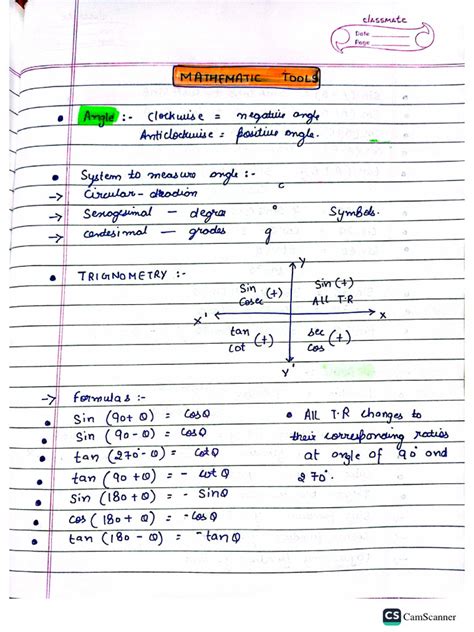 classmate
Date
Page
MATHEMATIC TOOLS
Angle :- Clockwise = negative angle
Anticlockwise = positive angle.
System to measure angle :-
→ Circular - c
→ Sexogesimal - degree ° Symbols.
→ centesimal - grades g
TRIGNOMETRY :-
Y
Sin Cosec (+) Sin (+) All T.R
X' X
tan cot (+) sec cos (+)
Y'
→ Formulas :-
Sin (90+θ) = Cosθ
Sin (90-θ) = Cosθ
tan (270-θ) = Cotθ
tan (90+θ) = - cotθ
Sin (180+θ) = - Sinθ
Cos (180+θ) = -Cosθ
tan (180-θ) = -tanθ
All T.R changes to
their corresponding ratios
at angle of 90° and
270°.
CS CamScanner